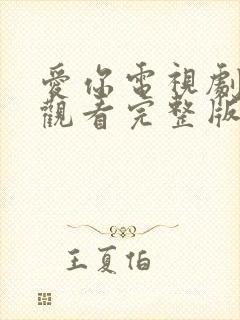 愛你電視劇
觀看完整版
王夏伯